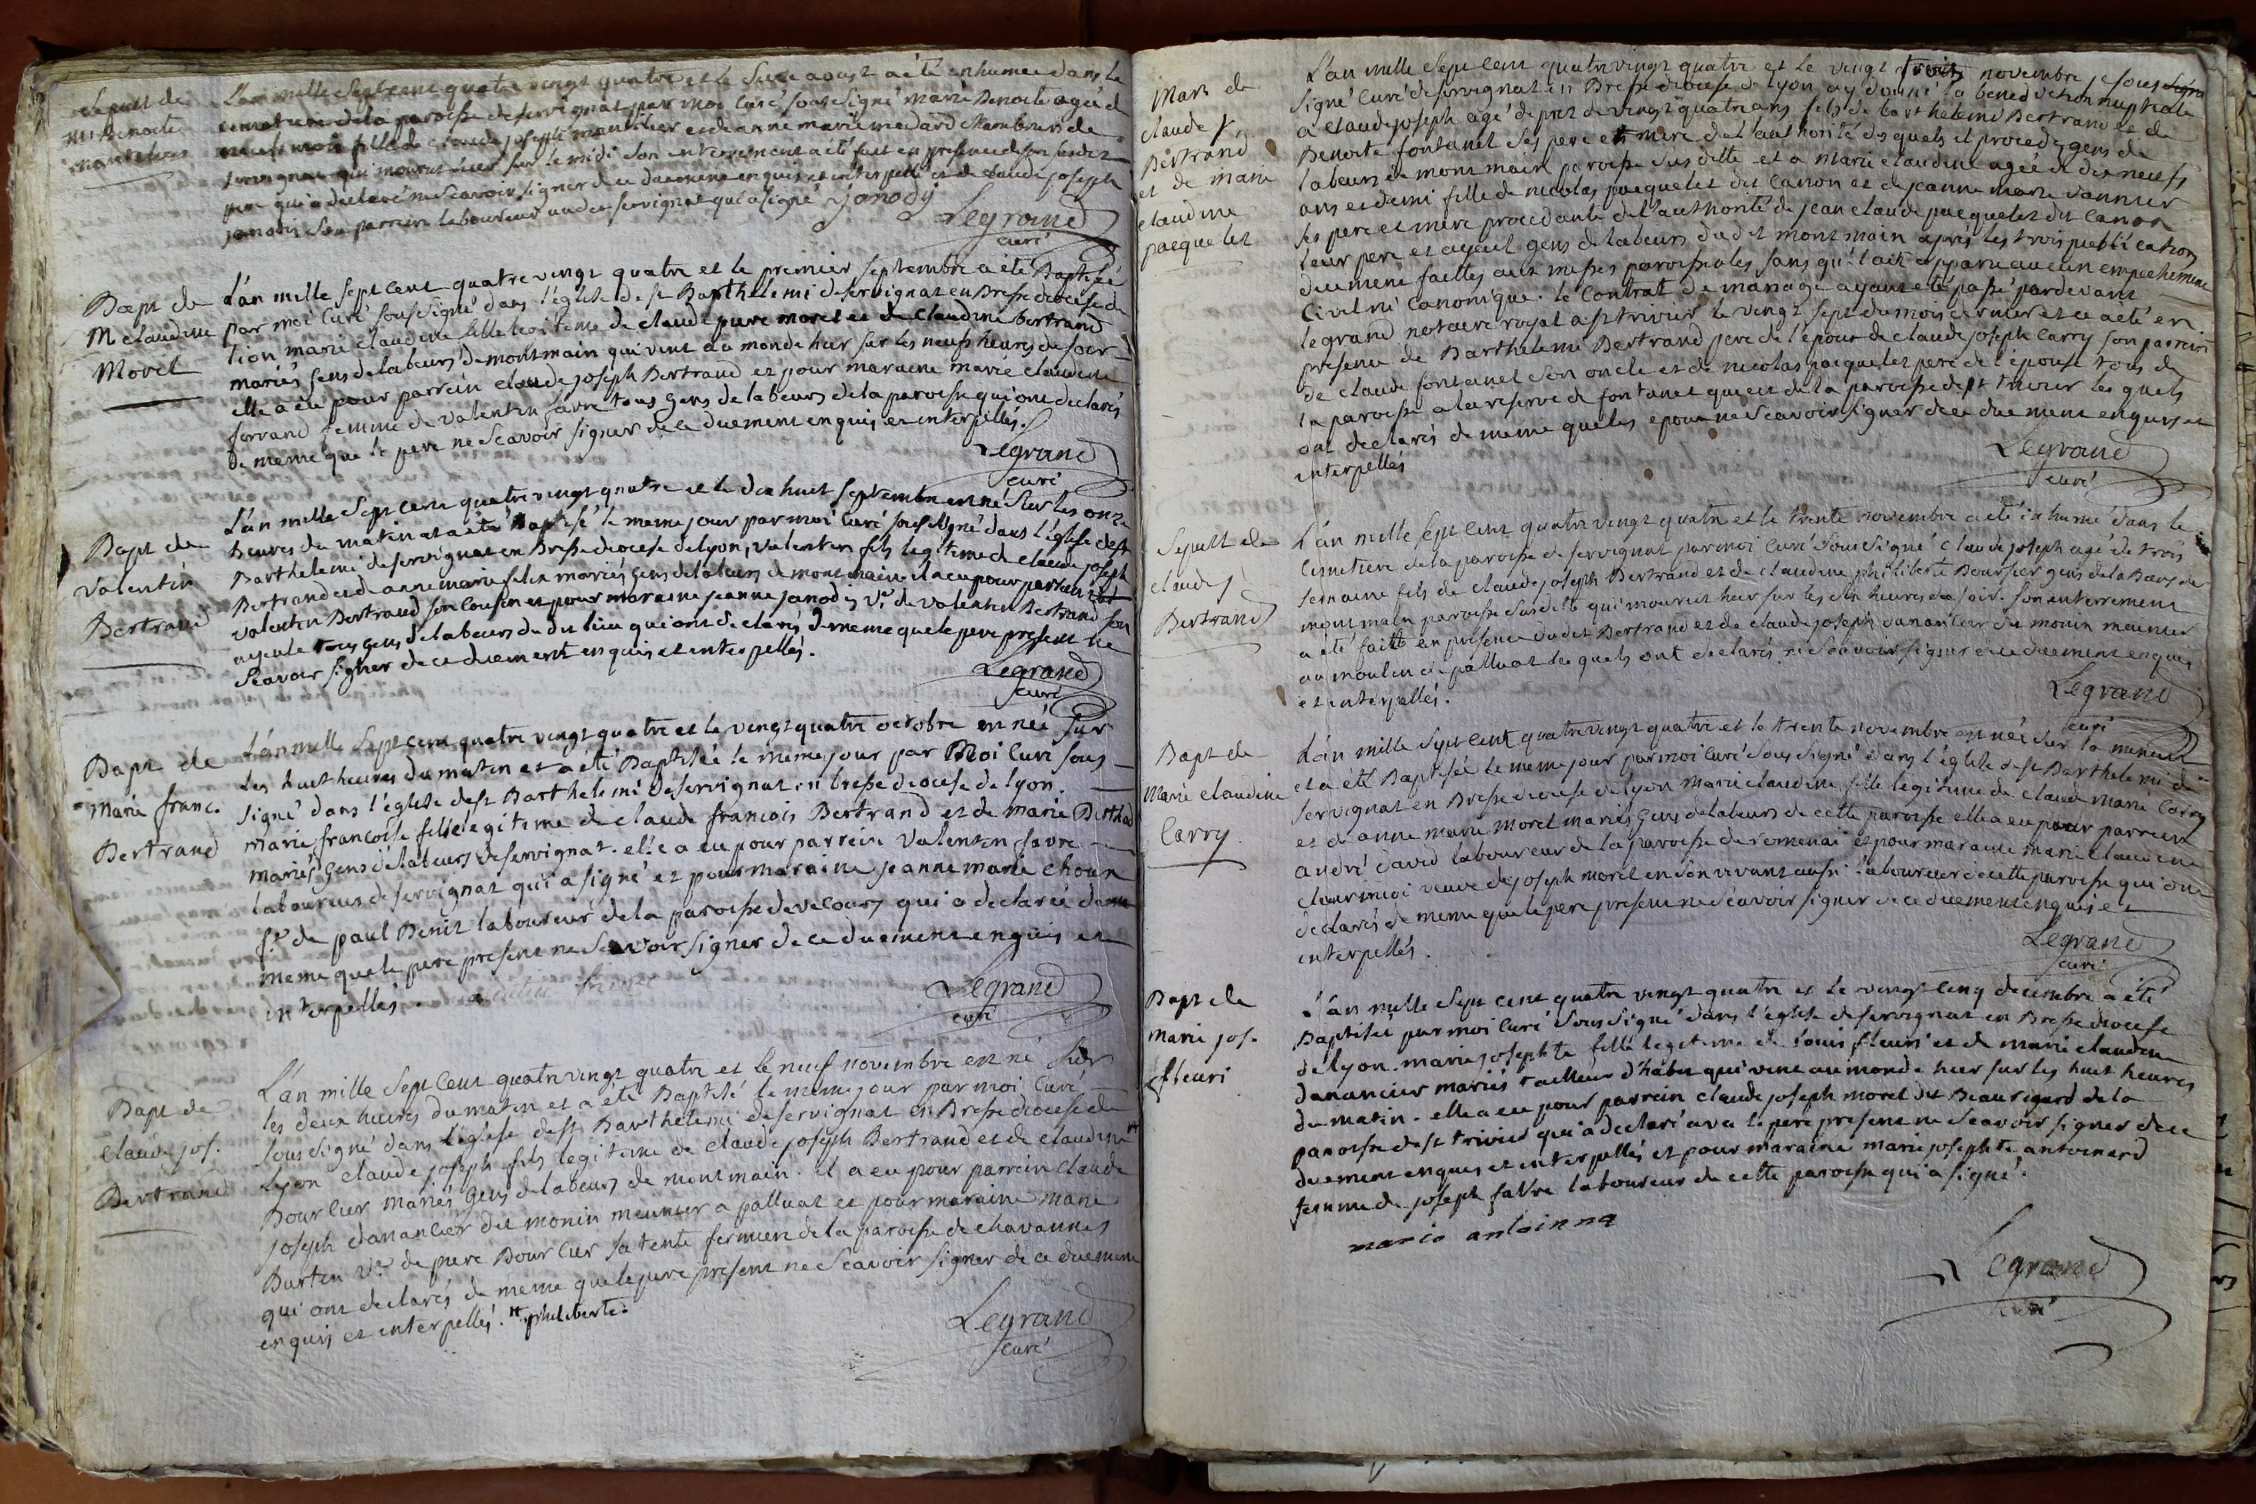 Sepult de
M. Benoite
L'an mille sept cent quatre vingt quatre et le seize aoust a été enhumée dans le
cimetiere de la paroisse de servignat par moi curé sous signé marie Benoite agée de
neuf mois fille de claude joseph et de anne marie medard de
servignat qui mourut hier sur le midi son enterrement a été fait en presence de son
pere qui a declaré ne scavoir signer de ce duement enquis et interpellé et de claude joseph
janody son parrein laboureur au dit servignat qui a signé. janody
Legrand
curé
Bapt de
M claudine
Morel
L'an mille sept cent quatre vingt quatre et le premier septembre a été Baptisée
par moi curé sous signé dans l'église de st Barthelemi de servignat en Bresse diocese de
lion marie claudine fille legitime de claude pierre morel et de claudine bertrand
mariés gens de labeurs de montmain qui vint au monde hier sur les neufs heures du soir
elle a eu pour parrein claude joseph Bertrand et pour maraine marie claudine
ferrand femme de valentin favre tous gens de labeurs de la paroisse qui ont declarés
de meme que le pere ne scavoir signer de ce duement enquis et interpellés.
Legrand
curé
Bapt de
valentin
Bertrand
L'an mille sept cent quatre vingt quatre et le dix huit septembre est né sur les onze
heures du matin et a été Baptisé le meme jour par moi curé sous signé dans l'église de st
Barthelemi de servignat en Bresse diocese de lyon, valentin fils legitime de claude joseph
Bertrand et de anne marie felix mariés gens de labeurs de montmain il a eu pour parrain
valentin Bertrand son cousin et pour maraine jeanne janody ve de valentin Bertrand son
ayeule tous gens de labeurs du dit lieu qui ont declarés de meme que le pere present ne
scavoir signer de ce duement enquis et interpellés.
Legrand
curé
Bapt de
marie franc.
Bertrand
L'an mille sept cent quatre vingt quatre et le vingt quatre octobre est née sur
les huit heures du matin et a été Baptisée le meme jour par Moi curé sous
signé dans l'église de st Barthelemi de servignat en bresse diocese de lyon.
marie francoise fille legitime de claude francois Bertrand et de marie
mariés gens de labeurs de servignat. elle a eu pour parrein valentin favre
laboureur de servignat qui a signé et pour maraine jeanne marie
fe de paul Benit laboureur de la paroisse de vecours qui a declaré de
meme que le pere present ne scavoir signer de ce duement enquis et
interpellés.
Legrand
curé
Bapt de
claude jos.
Bertrand
L'an mille sept cent quatre vingt quatre et le neuf novembre est né sur
les deux heures du matin et a été Baptisé le meme jour par moi curé
sous signé dans l'église de st Barthelemi de servignat en Bresse diocese de
Lyon claude joseph fils legitime de claude joseph Bertrand et de claudine #
Bourlier mariés gens de labeurs de montmain. il a eu pour parrein claude
joseph danancier dit monin meunier a palluat et pour maraine marie
Burtin ve de pierre Bourlier sa tente fermiere de la paroisse de chavannes
qui ont declarés de meme que le pere present ne scavoir signer de ce duement
enquis et interpellés. # philiberte.
Legrand
curé
Mari de
claude j
Bertrand
et de marie
claudine
paequelet
L'an mille sept cent quatre vingt quatre et le vingt trois novembre je sous
signé curé de servignat en Bresse diocese de lyon ay donné la benediction nuptiale
a claude joseph agé de prez de vingt quatre ans fils de barthelemi Bertrand et de
Benoite fontanel ses pere et mere de l'authorité des quels il procede, gens de
labeurs de montmain paroisse sus ditte et a marie claudine agée de dix neufs
ans et demi fille de nicolas paequelet dit canon et de jeanne marie vannier
ses pere et mere procedante de l'authorité de jean claude paequelet dit canon
leur pere et ayeul gens de labeurs du dit montmain après les trois publications
duement faittes aux messes paroissiales sans qu'il ait apparu aucun empechement
civil ni canonique. le contrat de mariage ayant été passé pardevant
legrand notaire royal a st trivier le vingt sept du mois dernier et ce a été en
presence de Barthelemi Bertrand pere de l'epoux de claude joseph carry son parrein
de claude fontanel son oncle et de nicolas paequelet pere de l'épouse tous de
la paroisse a la reserve de fontanel qui est de la paroisse de st trivier les quels
ont declarés de meme que les epoux ne scavoir signer de ce duement enquis et
interpellés
Legrand
curé
Sepult de
claude j
Bertrand
L'an mille sept cent quatre vingt quatre et le trente novembre a été inhumé dans le
cimetiere de la paroisse de servignat par moi curé sous signé claude joseph agé de trois
semaine fils de claude joseph Bertrand et de claudine philiberte Bourlier gens de labeurs de
montmain paroisse sus ditte qui mourut hier sur les dix heures du soir. son enterrement
a été fait en presence du dit Bertrand et de claude joseph danancier dit monin meunier
au moulin de palluat les quels ont declarés ne scavoir signer de ce duement enquis
et interpellés.
Legrand
curé
Bapt de
marie claudine
Carry
L'an mille sept cent quatre vingt quatre et le trente novembre est née sur la minuit
et a été Baptisée le meme jour par moi curé sous signé dans l'église de st Barthelemi de
servignat en Bresse diocese de lyon marie claudine fille legitime de claude marie Carry
et de anne marie Morel mariés gens de labeurs de cette paroisse elle a eu pour parrein
andré david laboureur de la paroisse de romenai et pour maraine marie claudine
veuve de joseph morel en son vivant aussi laboureur de cette paroisse qui ont
declarés de meme que le pere present ne scavoir signer de ce duement enquis et
interpellés.
Legrand
curé
Bapt de
marie jos.
fleuri
L'an mille sept cent quatre vingt quatre et le vingt cinq decembre a été
Baptisée par moi curé sous signé dans l'église de servignat en Bresse diocese
de lyon. marie josephte fille legitime de louis fleuri et de marie claudine
danancier mariés tailleur d'habit qui vint au monde hier sur les huit heures
du matin. elle a eu pour parrein claude joseph morel dit Beauregard de la
paroisse de st trivier qui a declaré avec le pere present ne scavoir signer de ce
duement enquis et interpellés et pour maraine marie josephte antoinard
femme de joseph favre laboureur de cette paroisse qui a signé.
marie antoinna
Legrand
curé